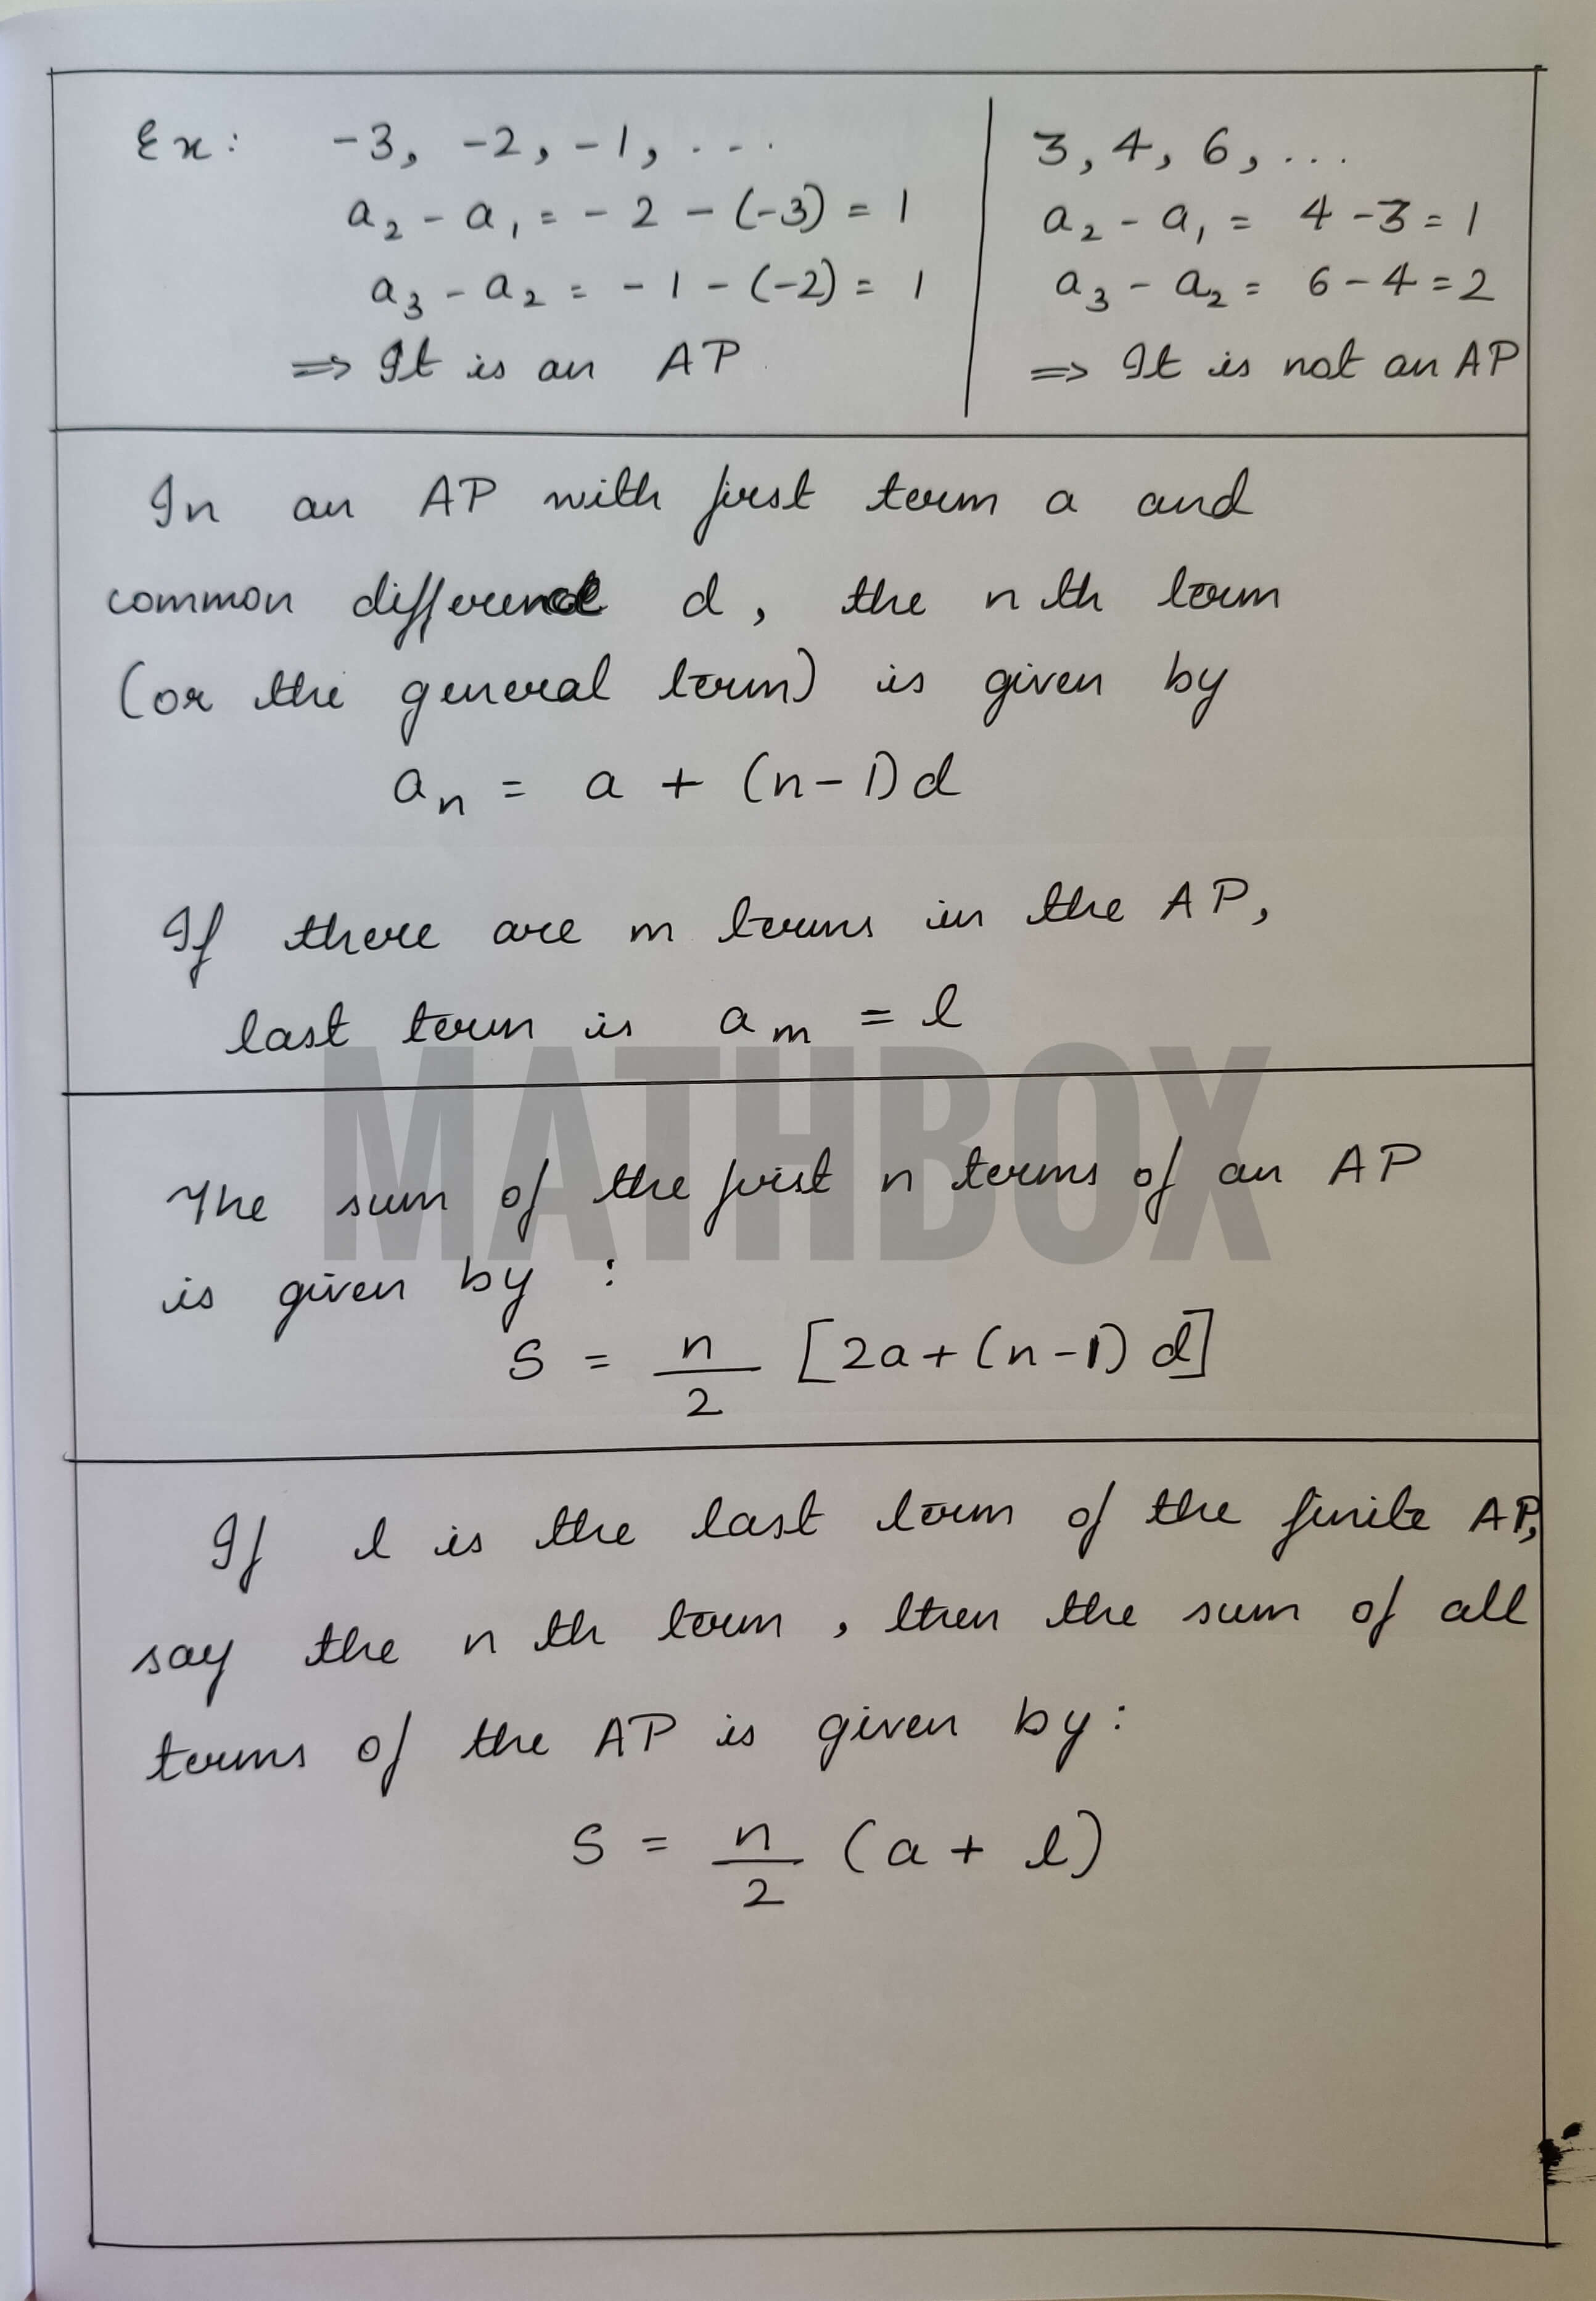 Ex: -3, -2, -1, ...
a₂ - a₁ = - 2 - (-3) = 1
a₃ - a₂ = - 1 - (-2) = 1
⇒ It is an AP
3, 4, 6, ...
a₂ - a₁ = 4 - 3 = 1
a₃ - a₂ = 6 - 4 = 2
⇒ It is not an AP
In an AP with first term a and
common difference d, the nth term
(or the general term) is given by
aₙ = a + (n-1)d
If there are m terms in the AP,
last term is aₘ = l
MATHBOX
The sum of the first n terms of an AP
is given by :
S = n/2 [2a+(n-1)d]
If l is the last term of the finite AP,
say the nth term, then the sum of all
terms of the AP is given by:
S = n/2 (a + l)